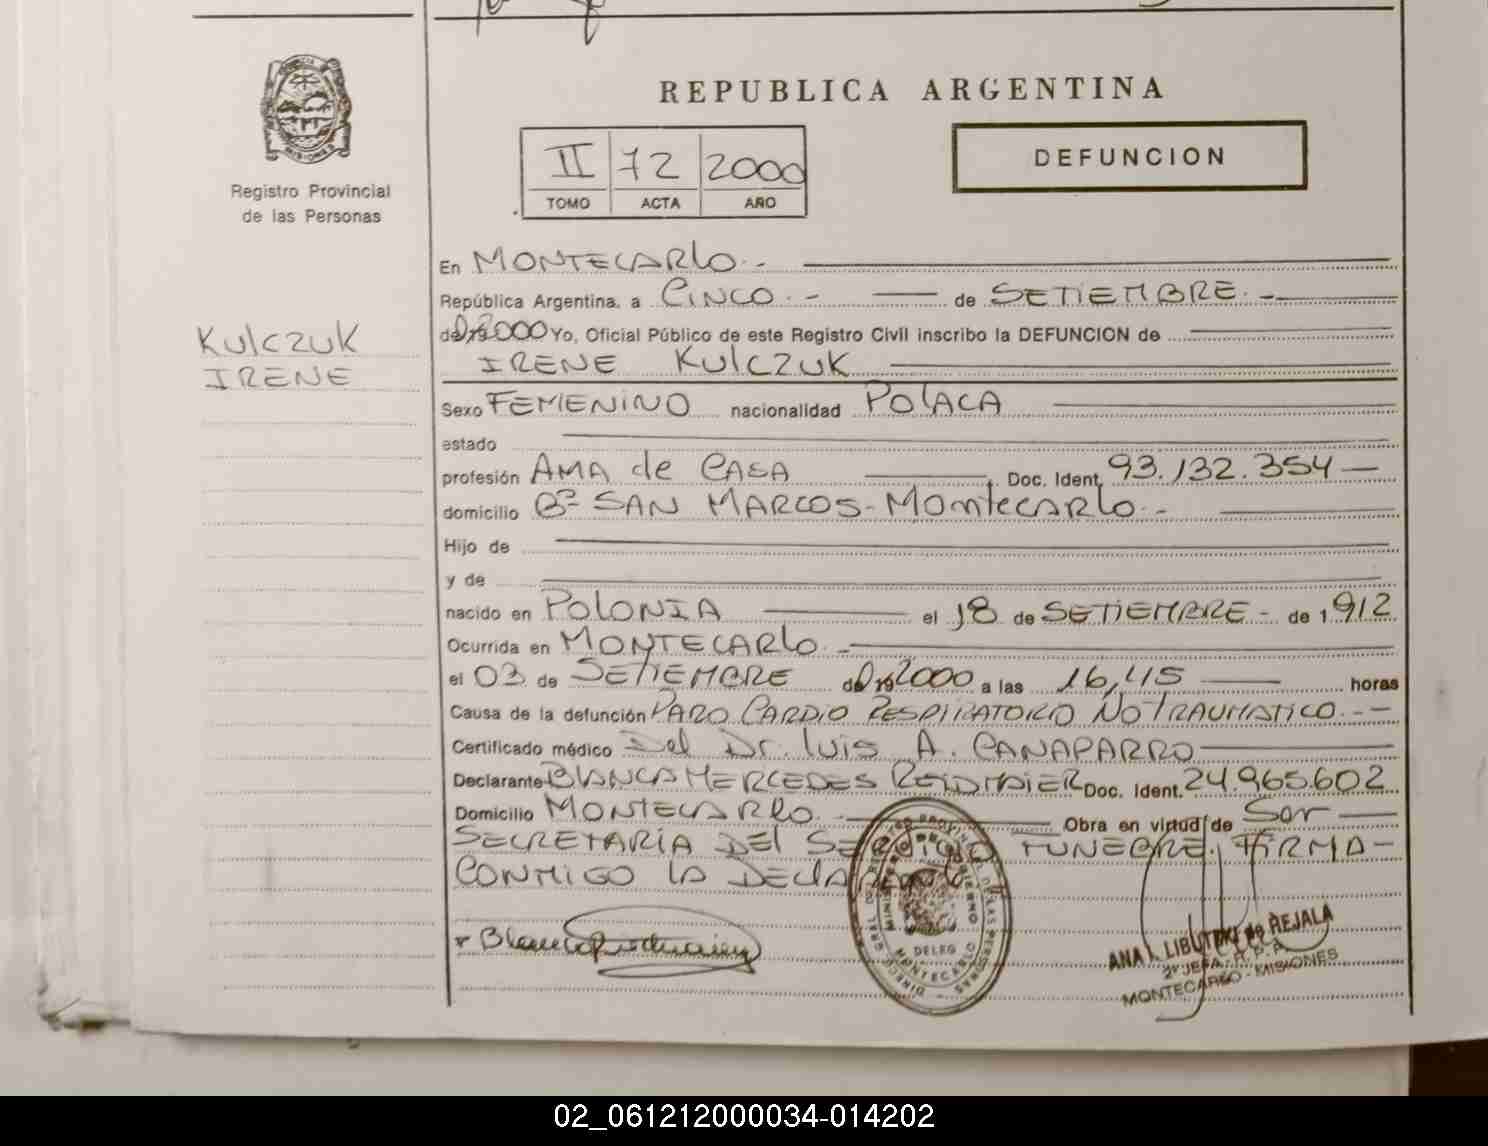 REPUBLICA ARGENTINA
MISIONES
Registro Provincial
de las Personas
II 72 2000
TOMO ACTA AÑO
DEFUNCION
Kulczuk
IRENE
En MONTECARlO.-
República Argentina, a CINCO.- de SETIEMBRE.-
de 19 2000 Yo, Oficial Público de este Registro Civil inscribo la DEFUNCION de
IRENE KUlCZUK
Sexo FEMENINO nacionalidad POlACA
estado
profesión AMA de CASA Doc. Ident. 93.132.354
domicilio Bº SAN MARCOS - MONTECARlO.-
Hijo de
y de
nacido en POlONIA el 18 de SETIEMBRE- de 1912
Ocurrida en MONTECARlO.-
el 03 de SETIEMBRE de 19 2000 a las 16,45 horas
Causa de la defunción PARO CARDIO RESPIRATORIO NO TRAUMATICO.--
Certificado médico Del Dr. luis A. CANAPARRO
Declarante BlANCA MERCEDES Doc. Ident. 24.965.602
Domicilio MONTECARlO.- Obra en virtud de Ser
SECRETARIA DEl SERVICIO FUNEBRE. FIRMA-
CONMIGO lA
DELEG
MONTECARLO
ANA I. de REJALA
2ª JEFA R. P. P.
MONTECARLO - MISIONES
02_061212000034-014202